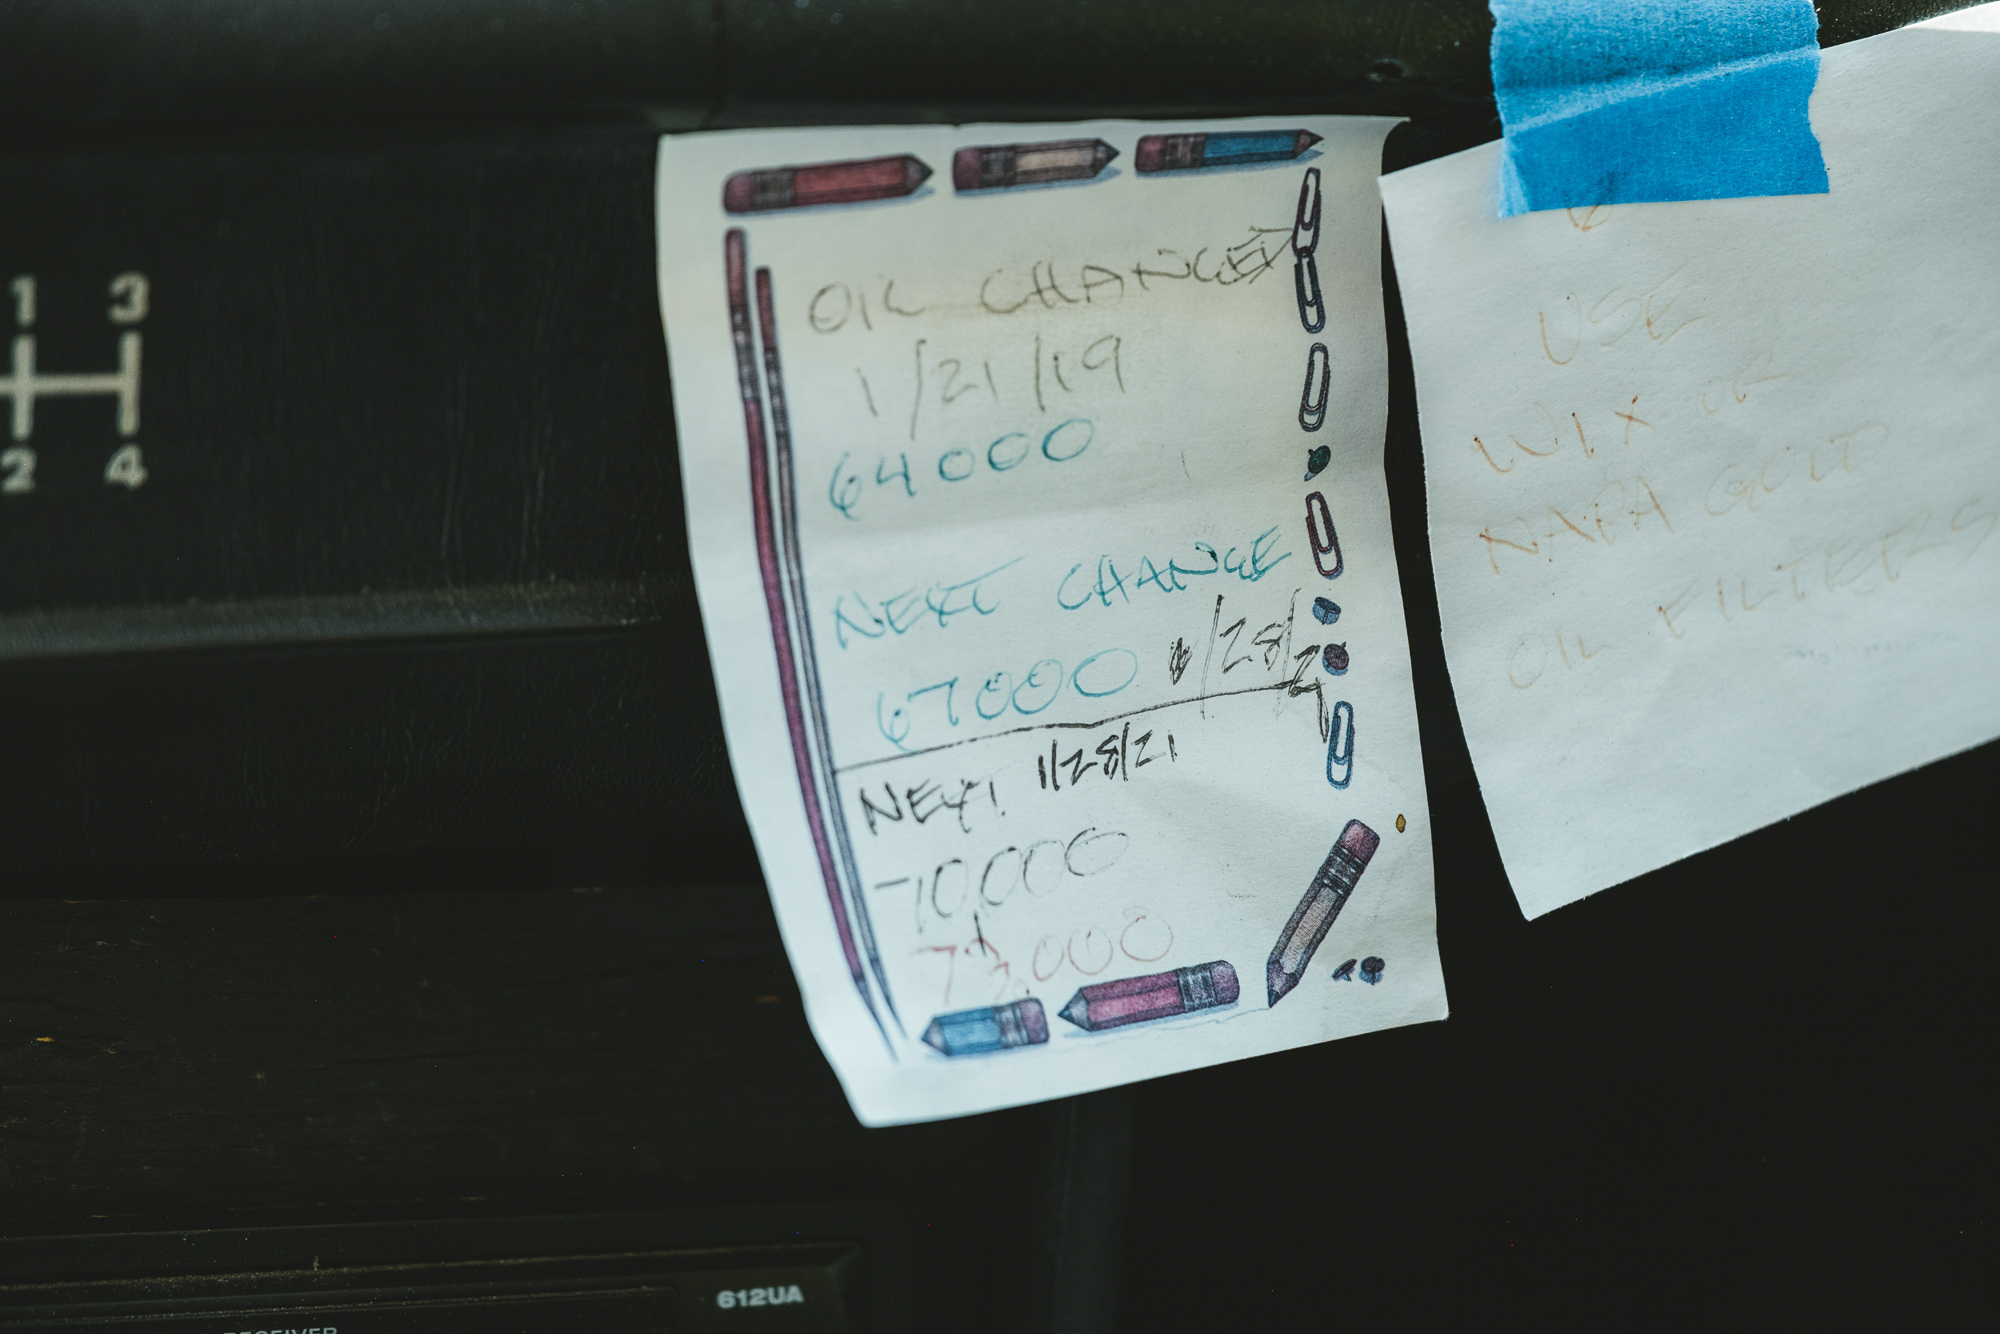 1 3
2 4
OIL CHANGE
1/21/19
64000
NEXT CHANGE
67000 1/28/21
NEXT 1/28/21
70,000
73,000
USE
WIX OR
NAPA GOLD
OIL FILTERS
612UA
RECEIVER